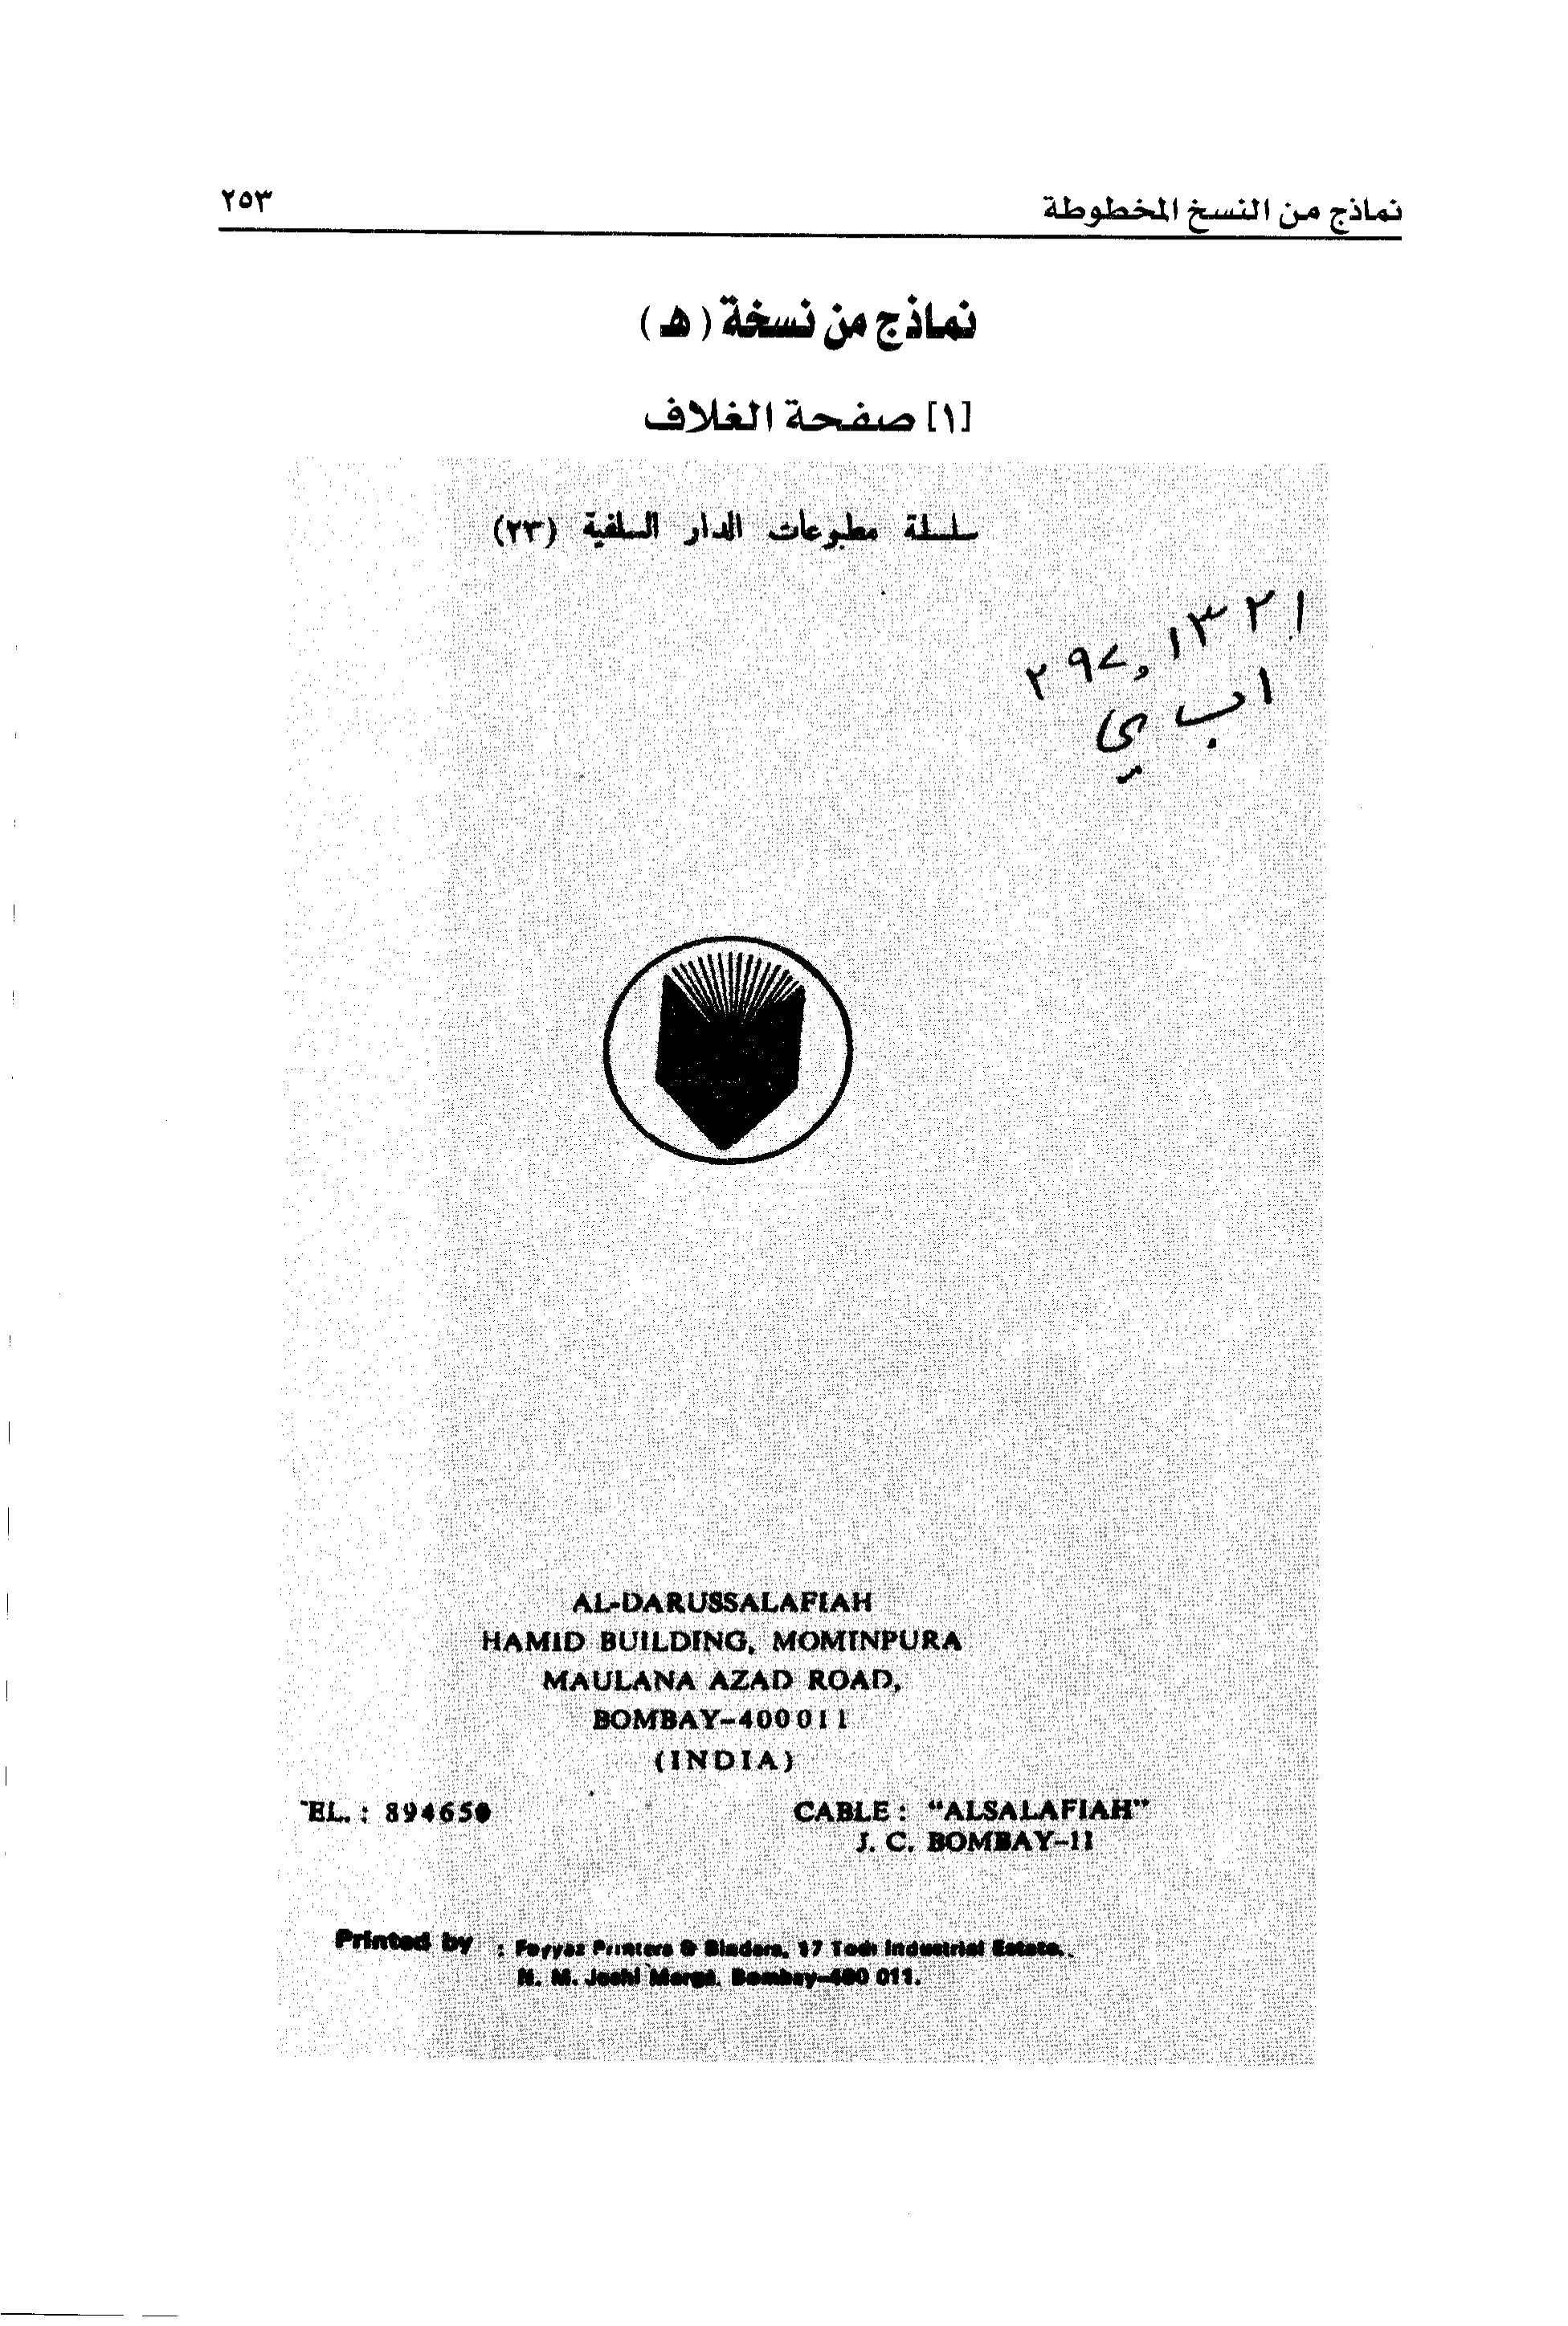 نماذج من النسخ المخطوطة
٢٥٣
نماذج من نسخة (هـ)
[١] صفحة الغلاف
سلسلة مطبوعات الدار السلفية (٢٣)
٢٩٧,١٣٢١
ا ب ي
AL-DARUSSALAFIAH
HAMID BUILDING, MOMINPURA
MAULANA AZAD ROAD,
BOMBAY-400011
(INDIA)
EL. : 894650
CABLE : "ALSALAFIAH"
J. C. BOMBAY-11
Printed by : Fayyaz Printers & Binders, 17 Todi Industrial Estate,
N. M. Joshi Marga, Bombay-400 011.